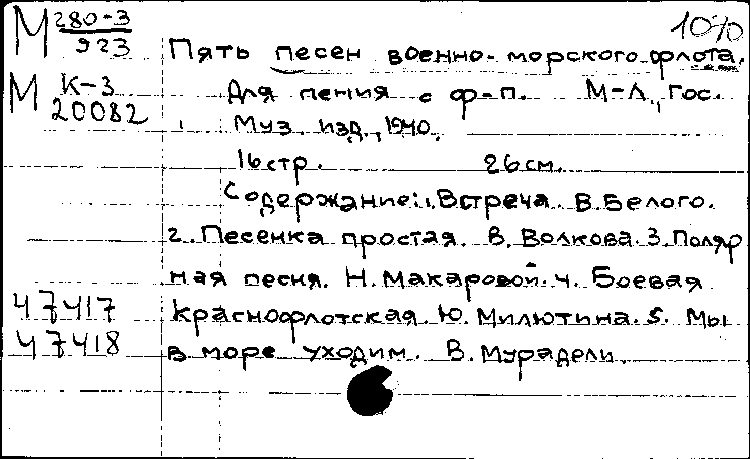 М 280-3
923
1070
Пять песен военно-морского флота.
М К-3
20082
Для пения с ф-п. М-Л., Гос.
Муз. изд., 1940.
16 стр. 26 см.
Содержание: 1. Встреча. В. Белого.
2. Песенка простая. В. Волкова. 3. Поляр
ная песня. Н. Макаровой. 4. Боевая
47417
Краснофлотская. Ю. Милютина. 5. Мы
47418
в море уходим. В. Мурадели.